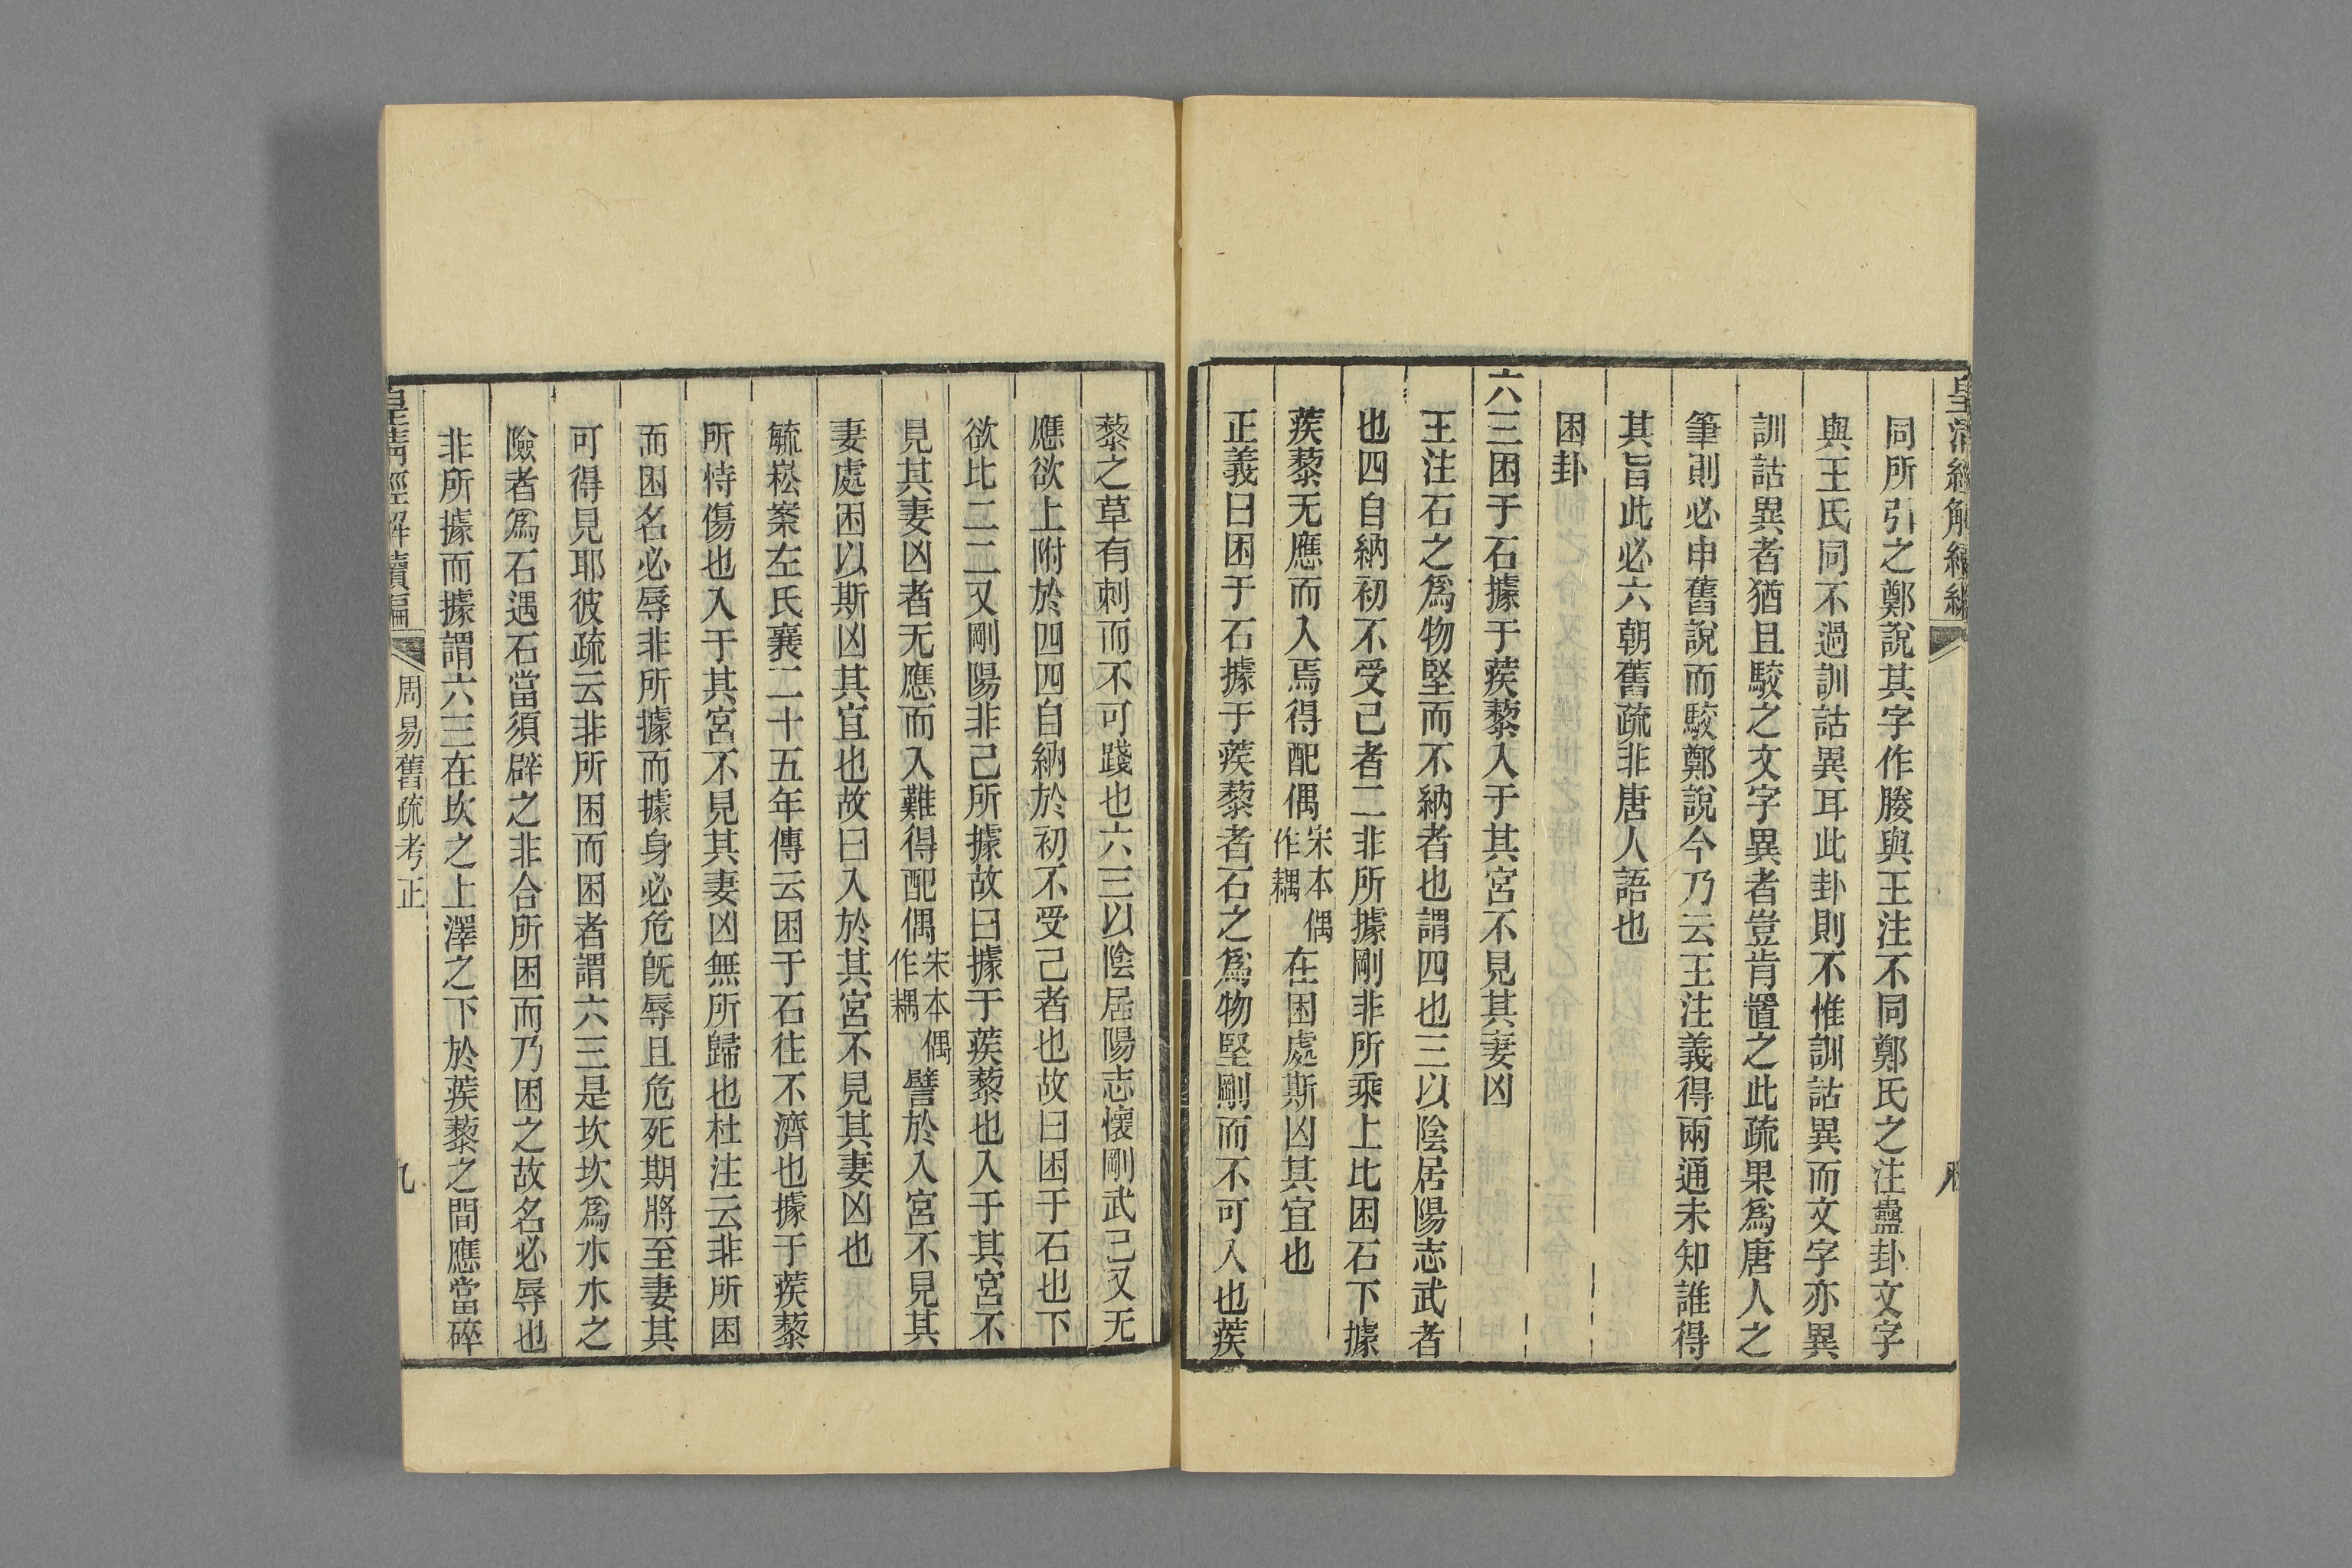 皇清經解續編
同所引之鄭說其字作媵與王注不同鄭氏之注蠱卦文字
與王氏同不過訓詁異耳此卦則不惟訓詁異而文字亦異
訓詁異者猶且駮之文字異者豈肯置之此疏果爲唐人之
筆則必申舊說而駮鄭說今乃云王注義得兩通未知誰得
其旨此必六朝舊疏非唐人語也
困卦
六三困于石據于蒺藜入于其宮不見其妻凶
王注石之爲物堅而不納者也謂四也三以陰居陽志武者
也四自納初不受己者二非所據剛非所乘上比困石下據
蒺藜无應而入焉得配偶宋本偶作耦在困處斯凶其宜也
正義曰困于石據于蒺藜者石之爲物堅剛而不可入也蒺
藜之草有刺而不可踐也六三以陰居陽志懷剛武己又无
應欲上附於四四自納於初不受己者也故曰困于石也下
欲比二二又剛陽非己所據故曰據于蒺藜也入于其宮不
見其妻凶者无應而入難得配偶宋本偶作耦譬於入宮不見其
妻處困以斯凶其宜也故曰入於其宮不見其妻凶也
毓崧案左氏襄二十五年傳云困于石往不濟也據于蒺藜
所恃傷也入于其宮不見其妻凶無所歸也杜注云非所困
而困名必辱非所據而據身必危旣辱且危死期將至妻其
可得見耶彼疏云非所困而困者謂六三是坎坎爲水水之
險者爲石遇石當須辟之非合所困而乃困之故名必辱也
非所據而據謂六三在坎之上澤之下於蒺藜之間應當碎
皇淸經解續編
周易舊疏考正
九